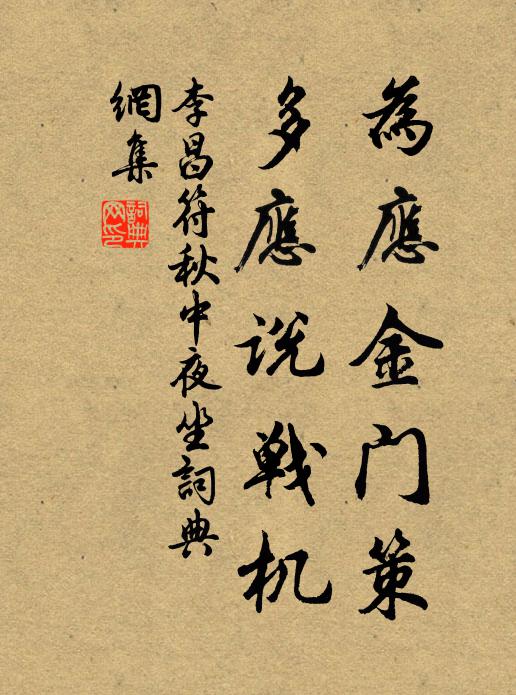 為應金门策
多應説戦机
李昌符秋中夜坐詞典
網集
詞典
网印